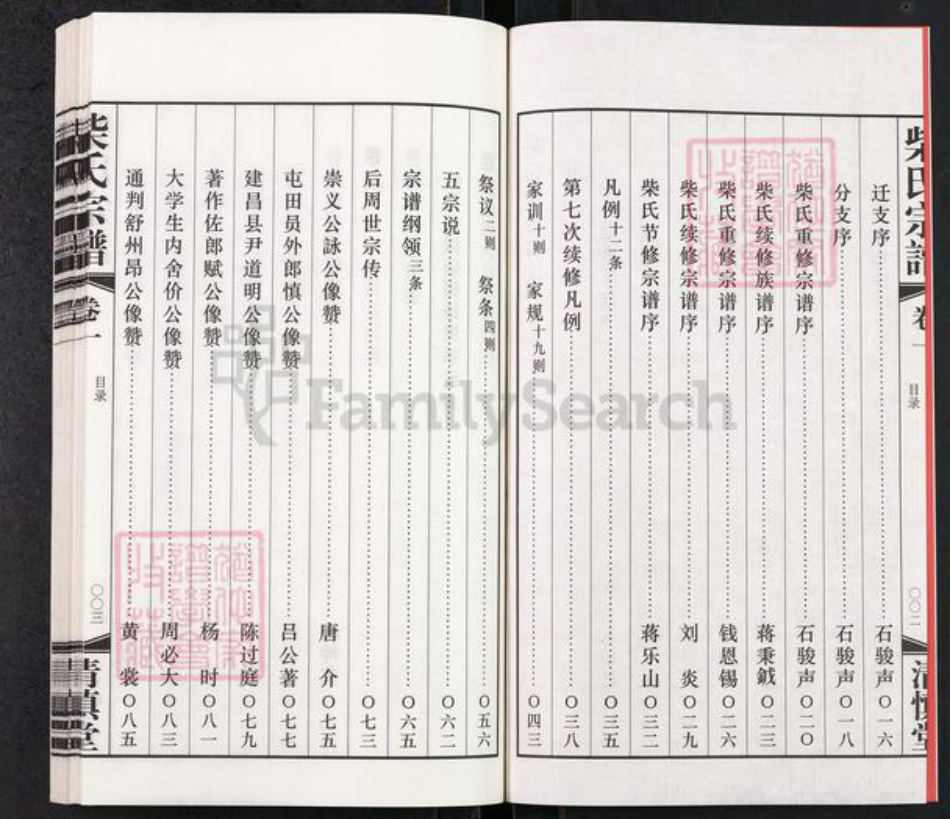 柴氏宗譜
卷一
目录
〇〇二
清慎堂
迁支序 石骏声 〇一六
分支序 石骏声 〇一八
柴氏重修宗谱序 石骏声 〇二〇
柴氏续修族谱序 蒋秉鉞 〇二三
柴氏重修宗谱序 钱恩锡 〇二六
柴氏续修宗谱序 刘炎 〇二九
柴氏节修宗谱序 蒋乐山 〇三二
凡例十二条 〇三五
第七次续修凡例 〇三八
家训十则 家规十九则 〇四三
祭议二则 祭条四则 〇五六
五宗说 〇六二
宗谱纲领三条 〇六五
后周世宗传 〇七三
崇义公詠公像赞 唐介 〇七五
屯田员外郎慎公像赞 吕公著 〇七七
建昌县尹道明公像赞 陈过庭 〇七九
著作佐郎赋公像赞 杨时 〇八一
大学生内舍价公像赞 周必大 〇八三
通判舒州昂公像赞 黄裳 〇八五
柴氏宗譜
卷一
目录
〇〇三
清慎堂
FamilySearch